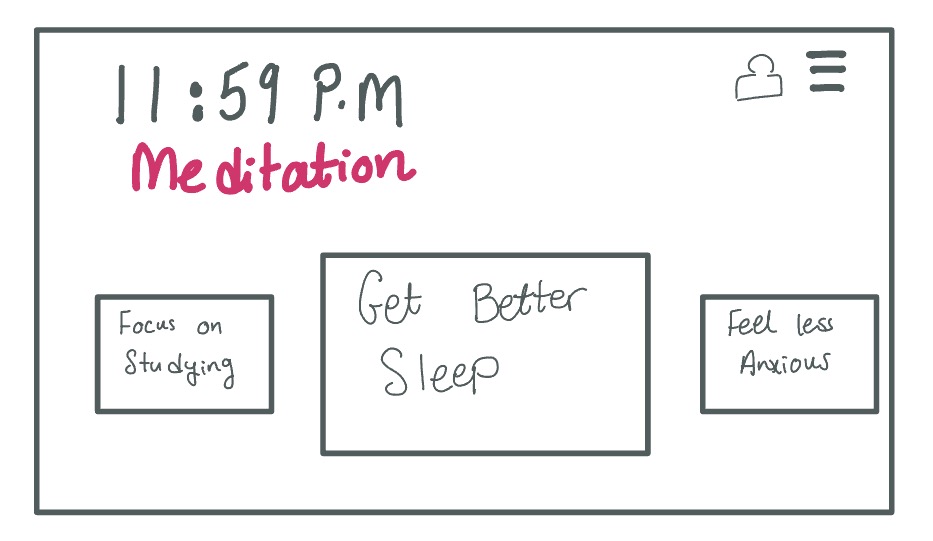 11:59 P.M
Meditation
Focus on
Studying
Get Better
Sleep
Feel less
Anxious